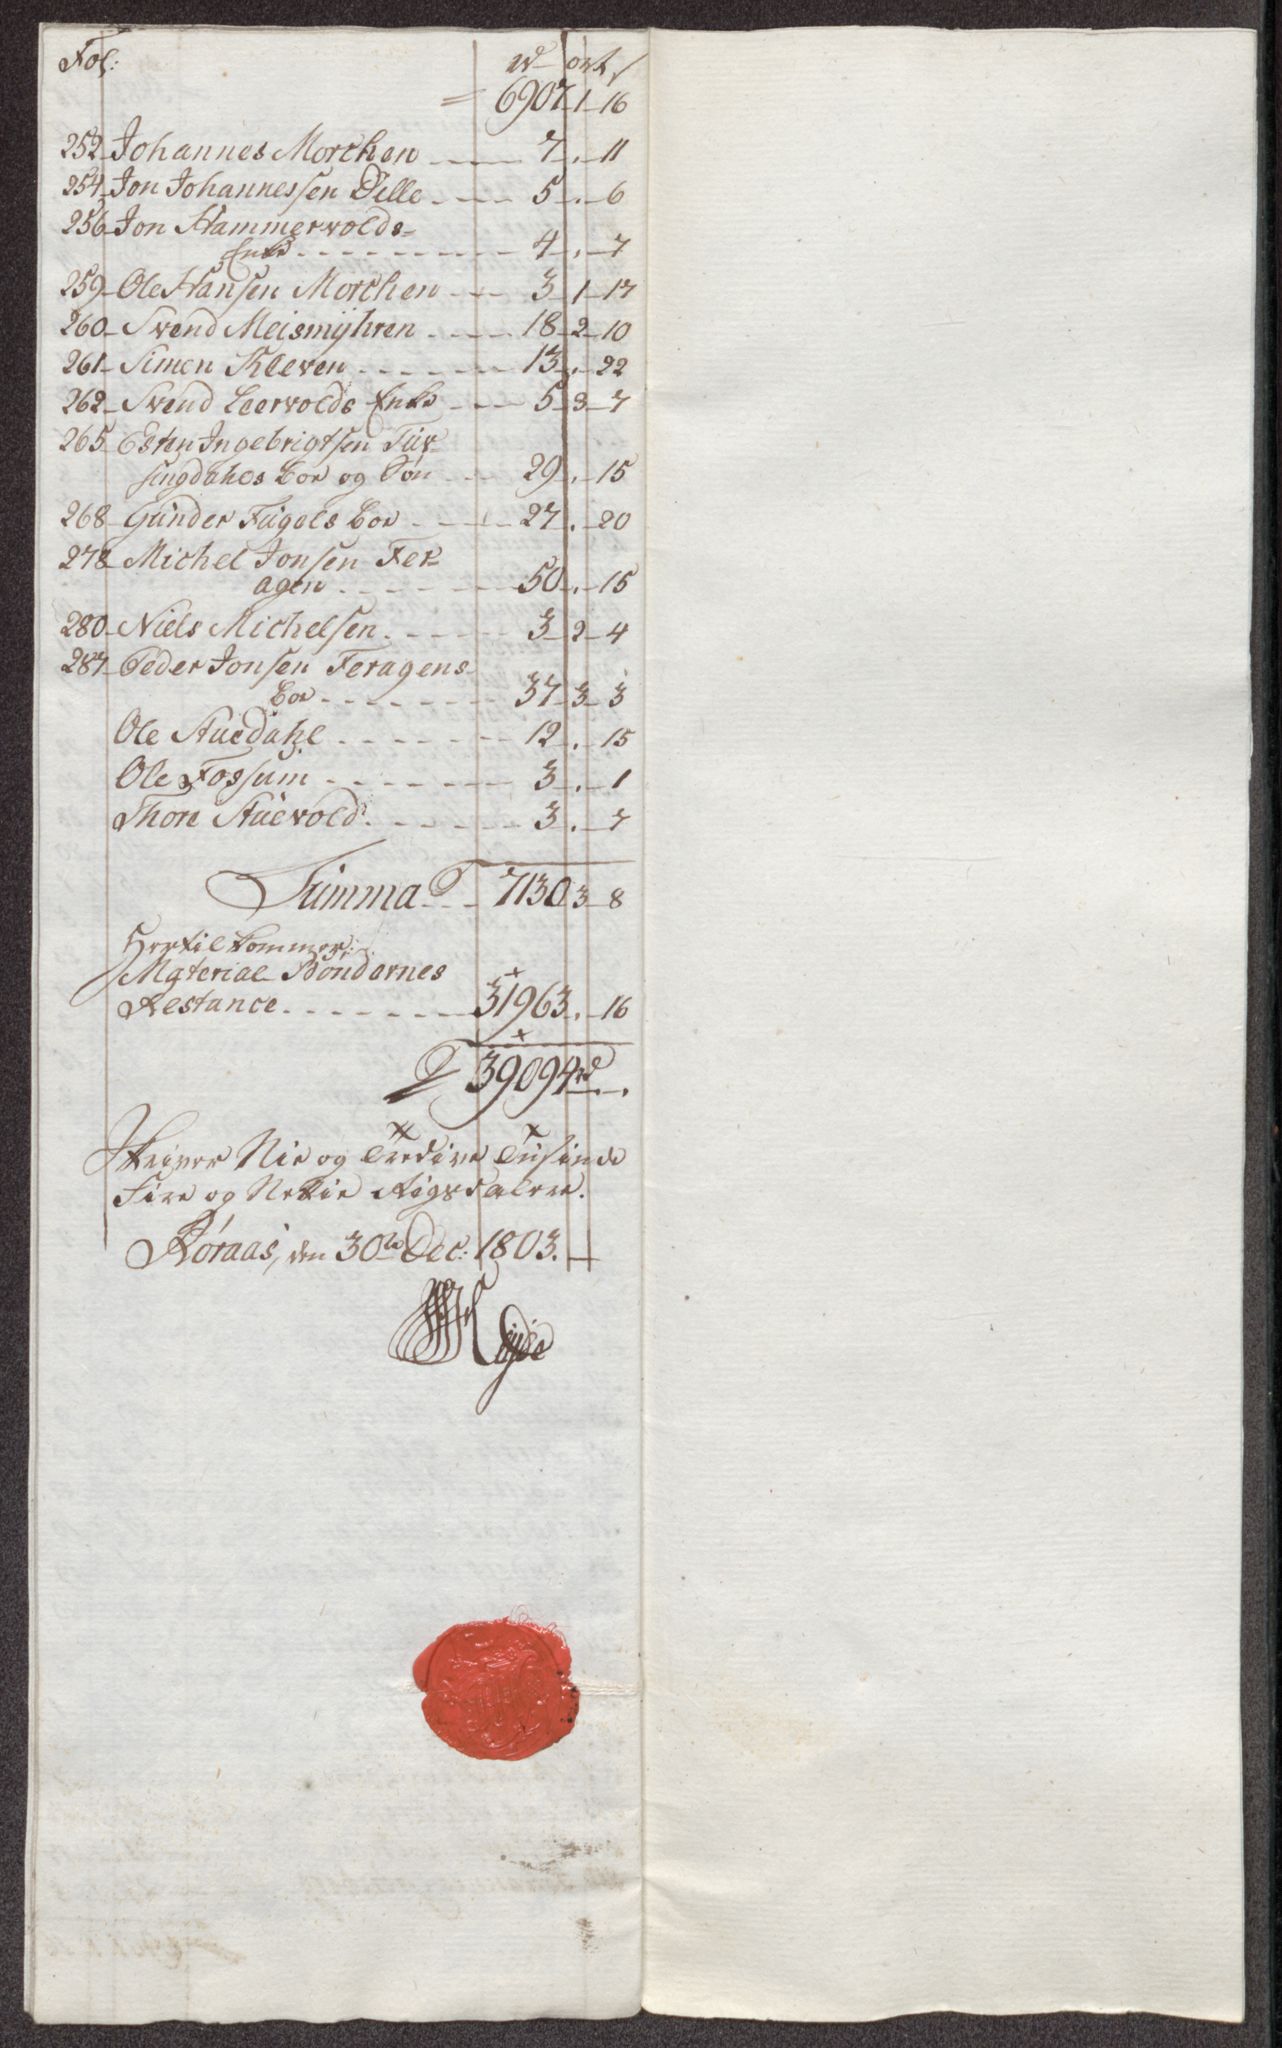 Fol: rd ort s
= 6907 1 16
252 Johannes Morken 7 . 11
254 Jon Johannessen Delle 5 . 6
256 Jon Hammervolds
Enke 4 . 7
259 Ole Hansen Morken 3 1 17
260 Svend Meismyhren 18 2 10
261 Simen Kleven 13 . 22
262 Svend Leervolds Enke 5 3 7
265 Esten Ingebrigtsen Tüf-
singdahls Boe og Søn 29 . 15
268 Günder Fügels Boe 27 . 20
278 Michel Jonsen Fer-
agen 50 . 15
280 Niels Michelsen 3 2 4
287 Peder Jonsen Feragens
Boe 37 3 3
Ole Stuedahl 12 . 15
Ole Fossum 3 . 1
Thore Stuevold 3 . 7
Summa 7130 3 8
Hertil kommer:
Material Bøndernes
Restance 31963 . 16
39094 rd . .
Skriver Nie og Tredive Tüsinde
Fire og Nettie Rigsdalere.
Røraas, den 30te Dec: 1803.